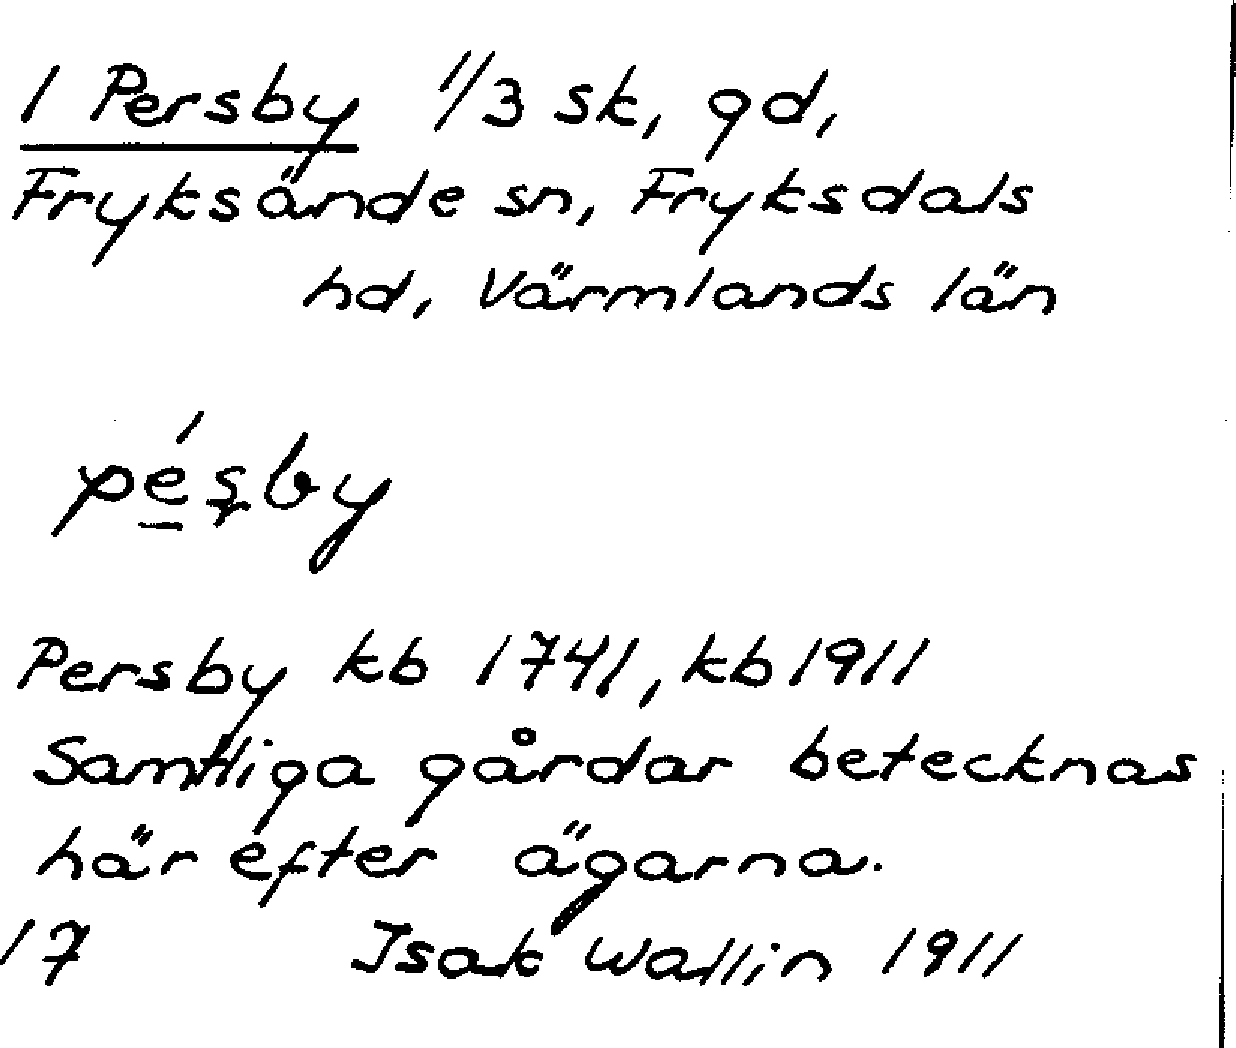 1 Persby 1/3 sk, gd,
Fryksände sn, Fryksdals
hd, Värmlands län
pé̲ʂby
Persby kb 1741, kb 1911
Samtliga gårdar betecknas
här efter ägarna.
17 Isak Wallin 1911